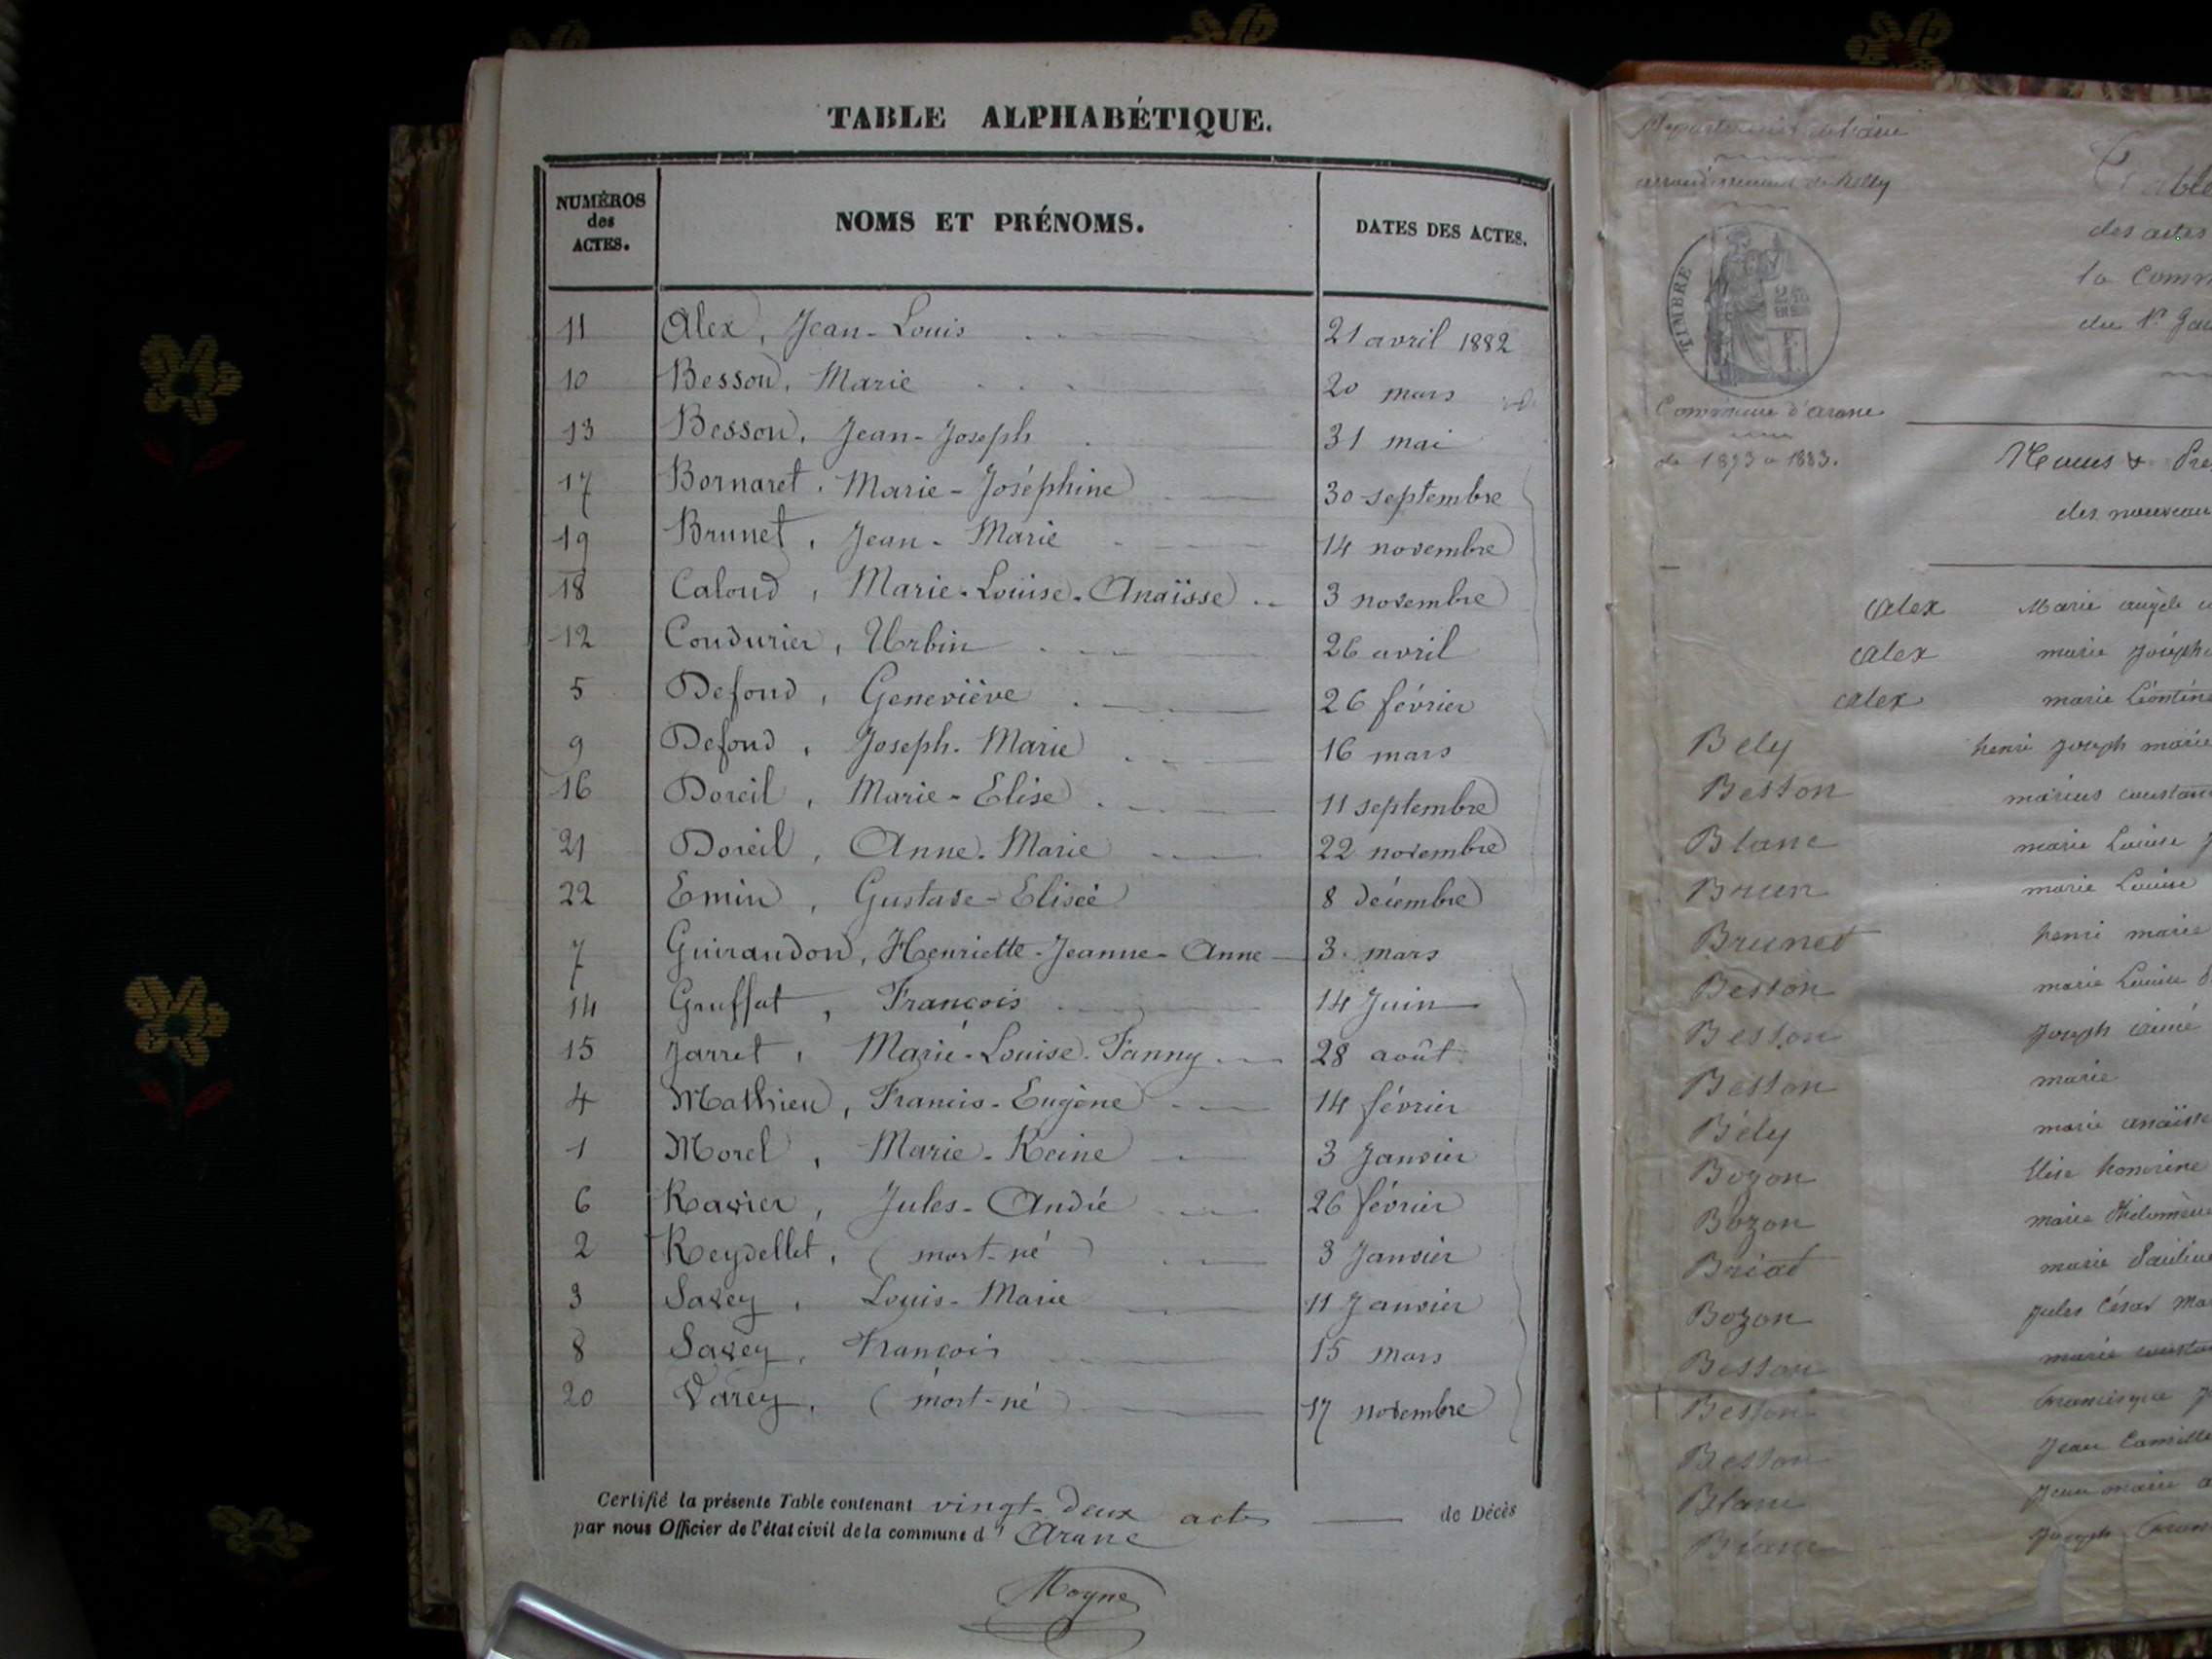 TABLE ALPHABÉTIQUE.
NUMÉROS des ACTES. NOMS ET PRÉNOMS. DATES DES ACTES.
11 Alex, Jean-Louis 21 avril 1882
10 Besson, Marie 20 mars
13 Besson, Jean-Joseph 31 mai
17 Bornaret, Marie-Joséphine 30 septembre
19 Brunet, Jean-Marie 14 novembre
18 Caloud, Marie-Louise-Anaïsse 3 novembre
12 Coudurier, Urbin 26 avril
5 Defond, Geneviève 26 février
9 Defond, Joseph-Marie 16 mars
16 Doreil, Marie-Elise 11 septembre
21 Doreil, Anne-Marie 22 novembre
22 Emin, Gustave-Elisée 8 décembre
7 Guiraudon, Henriette-Jeanne-Anne 3 mars
14 Gruffat, François 14 Juin
15 Jarret, Marie-Louise-Fanny 28 août
4 Mathieu, Francis-Eugène 14 février
1 Morel, Marie-Reine 3 Janvier
6 Ravier, Jules-André 26 février
2 Reydellet, (mort-né) 3 Janvier
3 Savey, Louis-Marie 11 Janvier
8 Savey, François 15 mars
20 Varey, (mort-né) 17 novembre
Certifié la présente Table contenant vingt-deux actes de Décès
par nous Officier de l'état civil de la commune d'Arane
Moyne
Table
des actes
la Comm
du 1er Jan
TIMBRE
Commune d'arane
de 1873 a 1883.
Noms & Pré
des nouveau
Alex Marie angèle
alex marie Joséph
alex marie Léontine
Bély henri joseph marie
Besson marius constant
Blanc marie Louise
Brun marie Louise
Brunet henri marie
Besson marie Louise
Besson joseph aimé
Besson marie
Bély marie anaïsse
Bozon Elise honorine
Bozon marie Philomène
Briat marie Pauline
Bozon jules César Ma
Besson marie
Besson francisque
Besson Jean Camille
Blanc jean marie
Blanc joseph